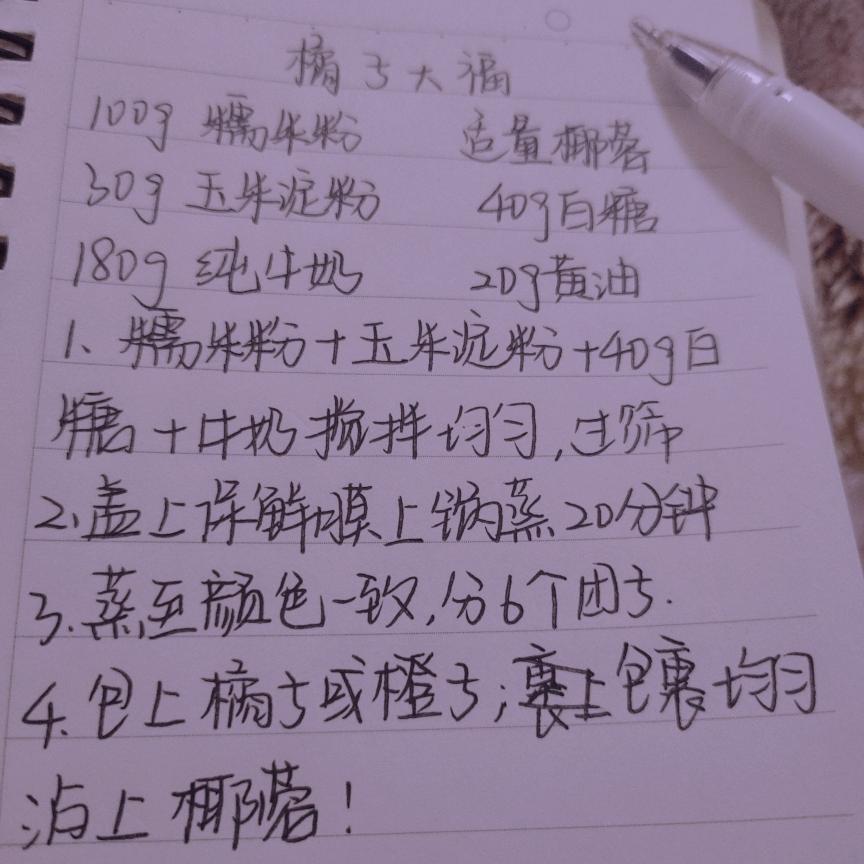 橘子大福
100g 糯米粉 适量椰蓉
30g 玉米淀粉 40g白糖
180g 纯牛奶 20g黄油
1、糯米粉+玉米淀粉+40g白
糖+牛奶搅拌均匀,过筛
2、盖上保鲜膜上锅蒸20分钟
3.蒸至颜色一致,分6个团子.
4.包上橘子或橙子;裹上包裹均匀
沾上椰蓉!